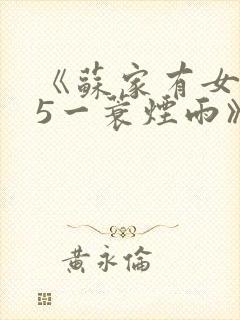 《蘇家有女
5一蓑煙雨》
黃永倫